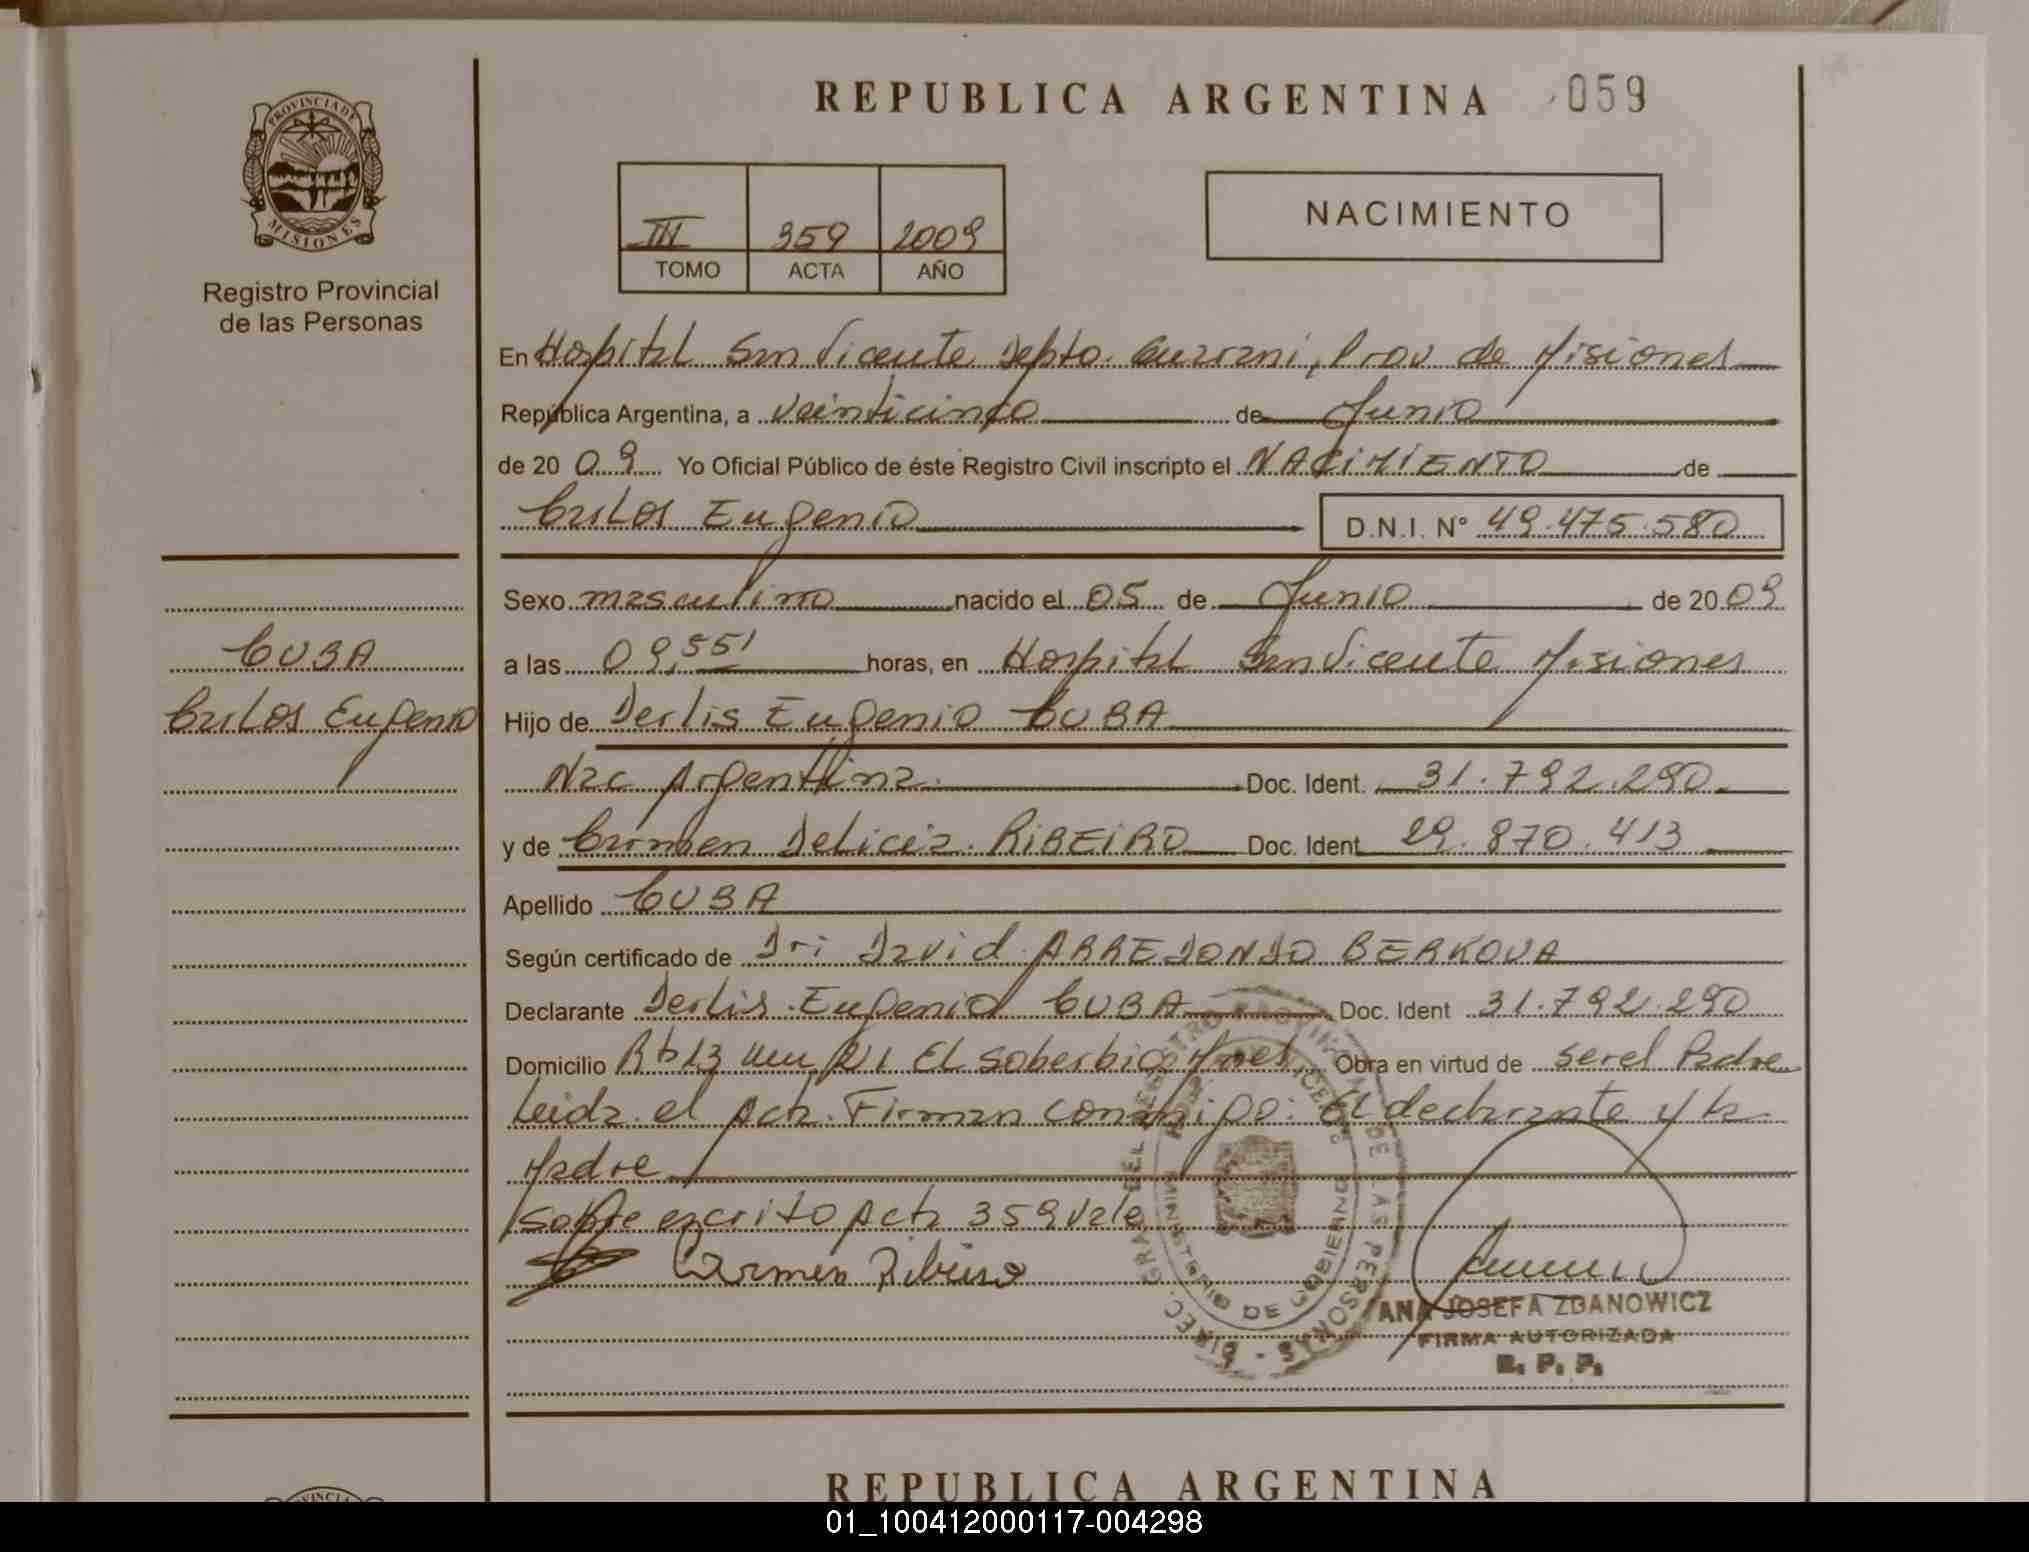 REPUBLICA ARGENTINA 059
PROVINCIA DE
MISIONES
Registro Provincial
de las Personas
III 359 2009
TOMO ACTA AÑO
NACIMIENTO
En Hospital San Vicente Depto. Guarani, Prov de Misiones
República Argentina, a veinticinco de Junio
de 20 09 Yo Oficial Público de éste Registro Civil inscripto el NACIMIENTO de
Carlos Eugenio D.N.I. N° 49.475.580
Sexo masculino nacido el 05 de Junio de 20 09
CUBA
a las 09,55' horas, en Hospital San Vicente Misiones
Carlos Eugenio
Hijo de Derlis Eugenio CUBA
Nac Argentina. Doc. Ident. 31.792.290
y de Carmen Delicia RIBEIRO Doc. Ident 29.870.413
Apellido CUBA
Según certificado de Dr. David ARREDONDO BERKOVA
Declarante Derlis Eugenio CUBA Doc. Ident 31.792.290
Domicilio El Soberbio Mnes, Obra en virtud de ser el Padre
Leida el Acta Firman conmigo: El declarante y la
Madre
Sobre escrito Acta 359 Vale
Carmen Ribeiro
DIREC. GRAL DEL REGISTRO PROVINCIAL DE LAS PERSONAS
MINISTERIO DE GOBIERNO
ANA JOSEFA ZDANOWICZ
FIRMA AUTORIZADA
R. P. P.
REPUBLICA ARGENTINA
01_100412000117-004298